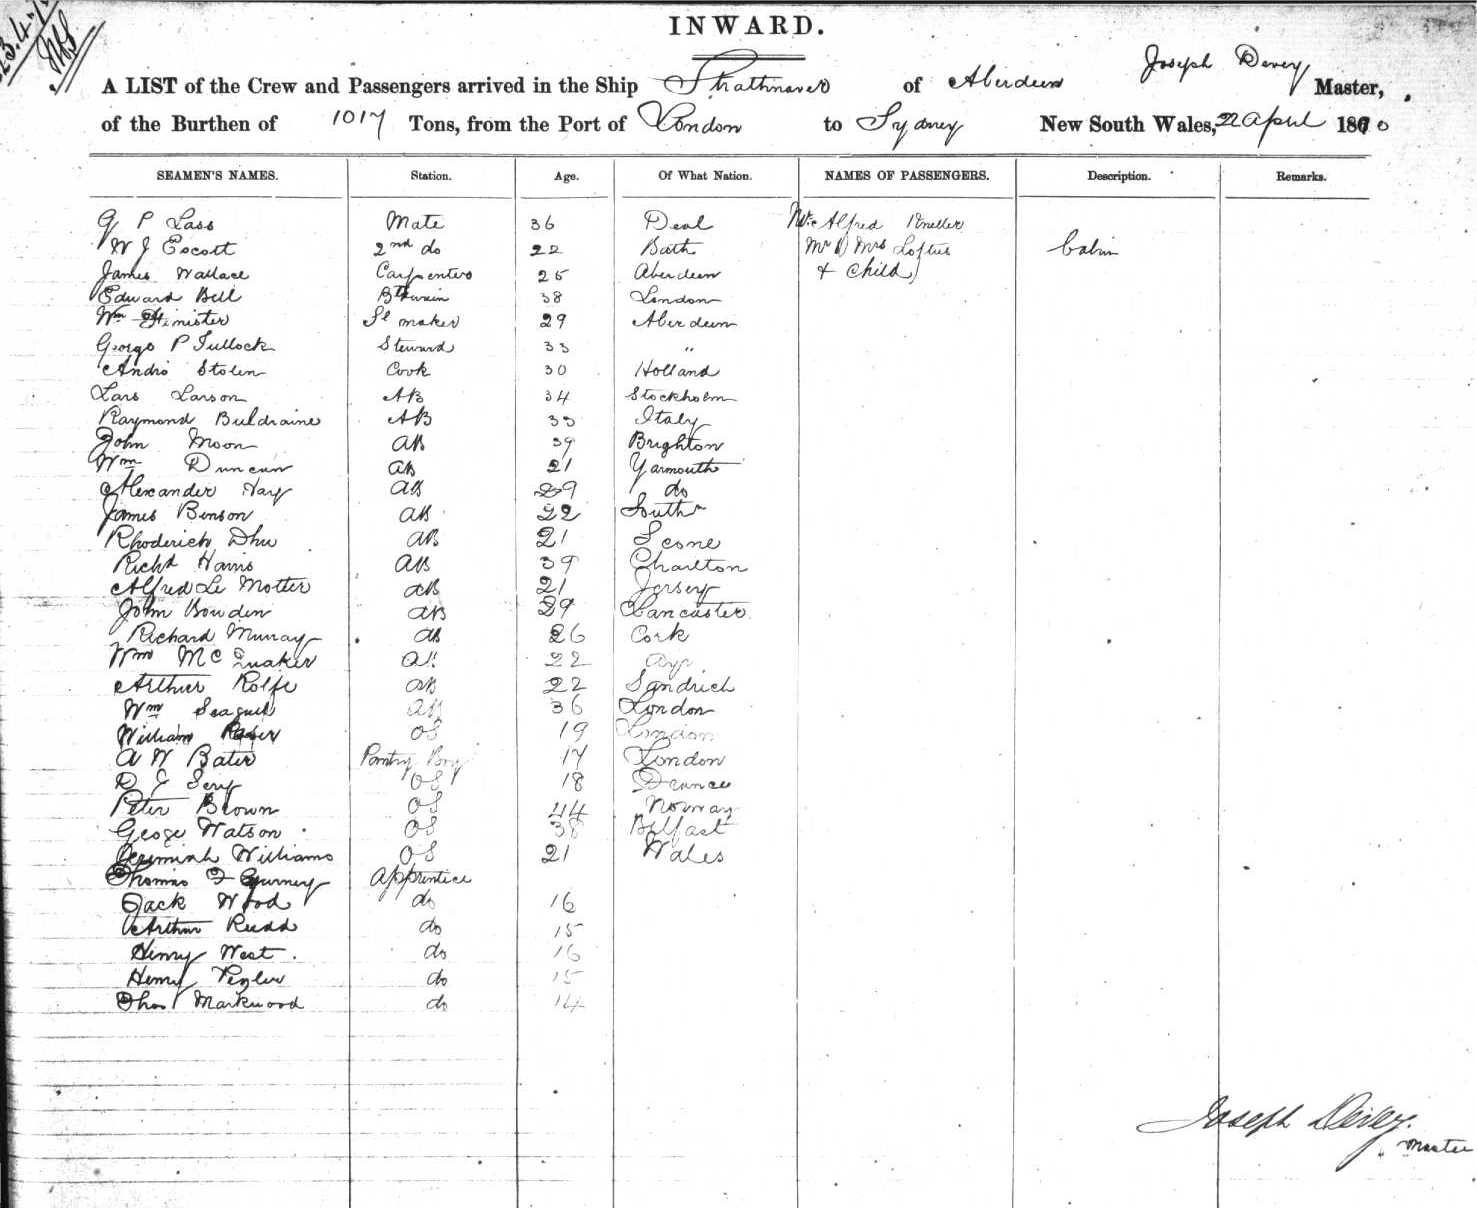 23.4.
INWARD.
A LIST of the Crew and Passengers arrived in the Ship Strathnaver of Aberdeen Joseph Devey Master,
of the Burthen of 1017 Tons, from the Port of London to Sydney New South Wales, 22 April 1870
SEAMEN'S NAMES. Station. Age. Of What Nation. NAMES OF PASSENGERS. Description. Remarks.
G P Lass Mate 36 Deal Mr Alfred
W J Escott 2nd do 22 Bath Mr & Mrs Loftus Cabin
James Wallace Carpenter 25 Aberdeen & Child
Edward Bell 38 London
Wm Finister Sl maker 29 Aberdeen
George P Tullock Steward 33 "
Andrö Stolen Cook 30 Holland
Lars Larson AB 34 Stockholm
Raymond Buldraine AB 33 Italy
John Moon AB 39 Brighton
Wm Duncan AB 21 Yarmouth
Alexander Hay AB 29 do
James Benson AB 22 South
Rhoderick Dhu AB 21 Scone
Richd Harris AB 39 Charlton
Alfred Le Motter AB 21 Jersey
John Bowden AB 29 Lancaster
Richard Murray AB 26 Cork
Wm McQuaker AB 22 Ayr
Arthur Rolfe AB 22 Sandrich
Wm Seagull AB 36 London
William OS 19 London
A W Bater Pantry Boy 17 London
D J OS 18
Peter Brown OS 44 Norway
George Watson OS 38 Belfast
Jeremiah Williams OS 21 Wales
Thomas F Gurney Apprentice
Jack Wood do 16
Arthur Rudd do 15
Henry West do 16
Henry Pegler do 15
Thos Markwood do 14
Joseph Devey
Master